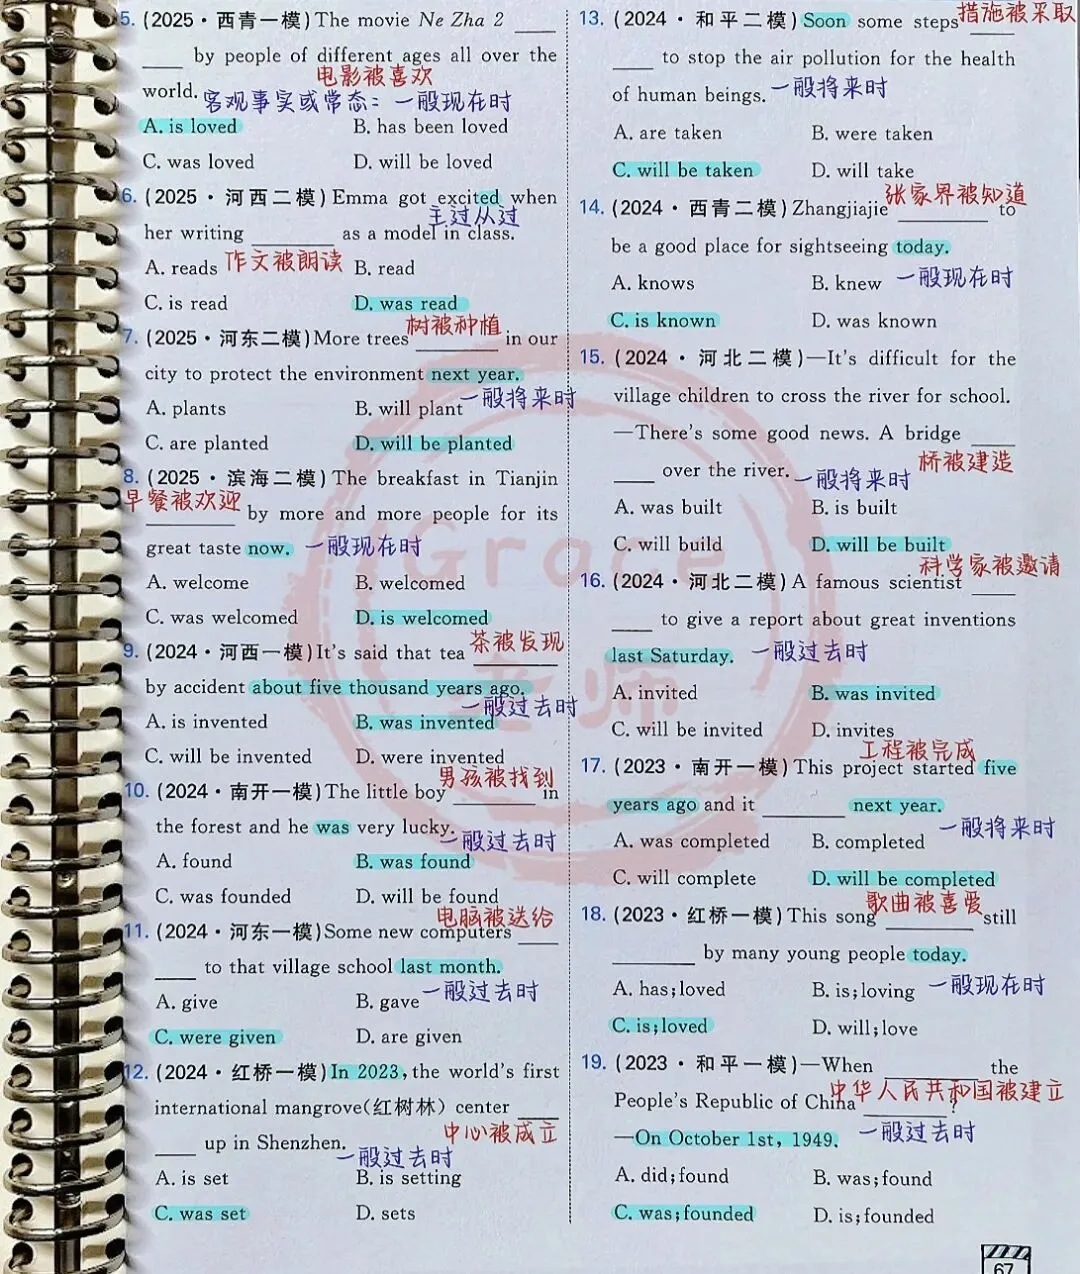 5. (2025·西青一模)The movie Ne Zha 2 ____
____ by people of different ages all over the
电影被喜欢
world. 客观事实或常态：一般现在时
A. is loved B. has been loved
C. was loved D. will be loved
6. (2025·河西二模)Emma got excited when
主过从过
her writing ________ as a model in class.
A. reads 作文被朗读 B. read
C. is read D. was read
树被种植
7. (2025·河东二模)More trees ________ in our
city to protect the environment next year.
A. plants B. will plant 一般将来时
C. are planted D. will be planted
8. (2025·滨海二模)The breakfast in Tianjin
早餐被欢迎
________ by more and more people for its
great taste now. 一般现在时
A. welcome B. welcomed
C. was welcomed D. is welcomed
9. (2024·河西一模)It's said that tea ________ 茶被发现
by accident about five thousand years ago.
一般过去时
A. is invented B. was invented
C. will be invented D. were invented
男孩被找到
10. (2024·南开一模)The little boy ________ in
the forest and he was very lucky.
一般过去时
A. found B. was found
C. was founded D. will be found
电脑被送给
11. (2024·河东一模)Some new computers ____
____ to that village school last month.
A. give B. gave 一般过去时
C. were given D. are given
12. (2024·红桥一模)In 2023, the world's first
international mangrove(红树林) center ____
中心被成立
____ up in Shenzhen.
一般过去时
A. is set B. is setting
C. was set D. sets
13. (2024·和平二模)Soon some steps ____ 措施被采取
____ to stop the air pollution for the health
of human beings. 一般将来时
A. are taken B. were taken
C. will be taken D. will take
张家界被知道
14. (2024·西青二模)Zhangjiajie ________ to
be a good place for sightseeing today.
A. knows B. knew 一般现在时
C. is known D. was known
15. (2024·河北二模)—It's difficult for the
village children to cross the river for school.
—There's some good news. A bridge ____
____ over the river. 一般将来时 桥被建造
A. was built B. is built
C. will build D. will be built
科学家被邀请
16. (2024·河北二模)A famous scientist ____
____ to give a report about great inventions
last Saturday. 一般过去时
A. invited B. was invited
C. will be invited D. invites
工程被完成
17. (2023·南开一模)This project started five
years ago and it ________ next year.
一般将来时
A. was completed B. completed
C. will complete D. will be completed
歌曲被喜爱
18. (2023·红桥一模)This song ________ still
________ by many young people today.
A. has;loved B. is;loving 一般现在时
C. is;loved D. will;love
19. (2023·和平一模)—When ________ the
中华人民共和国被建立
People's Republic of China ________?
—On October 1st, 1949. 一般过去时
A. did;found B. was;found
C. was;founded D. is;founded
Grace
老师
67